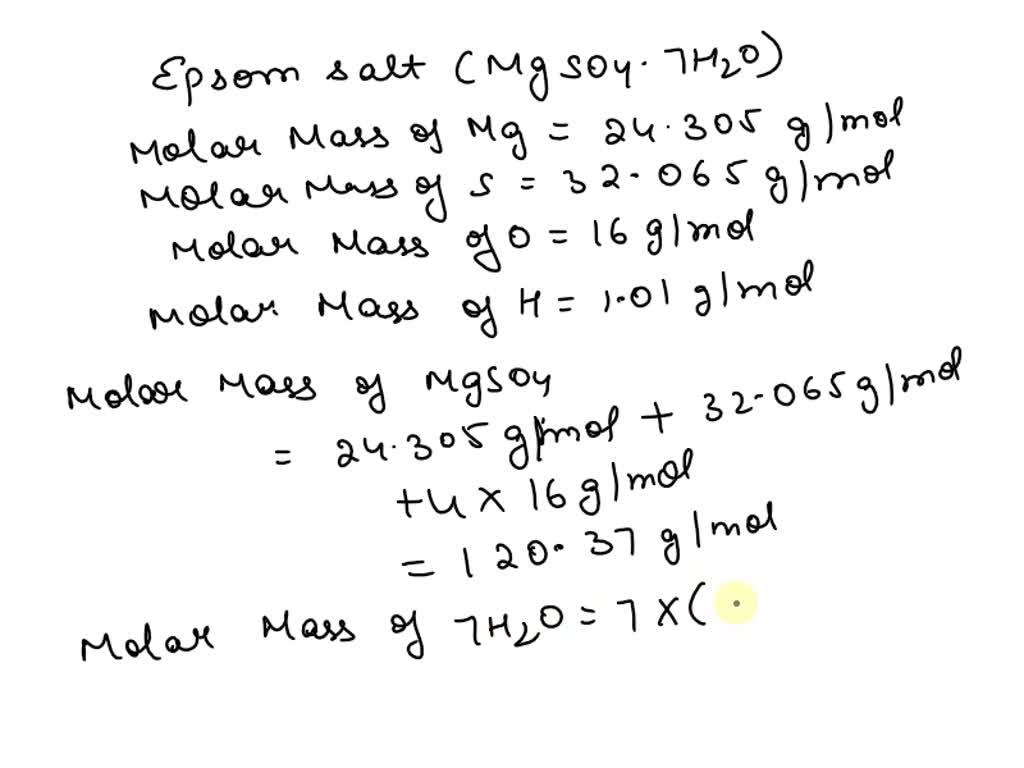 Epsom salt (MgSO4. 7H2O)
Molar Mass of Mg = 24.305 g/mol
Molar Mass of S = 32.065 g/mol
Molar Mass of O = 16 g/mol
Molar Mass of H = 1.01 g/mol
Molar Mass of MgSO4
= 24.305 g/mol + 32.065 g/mol
+4 x 16 g/mol
= 120.37 g/mol
Molar Mass of 7H2O = 7 x (